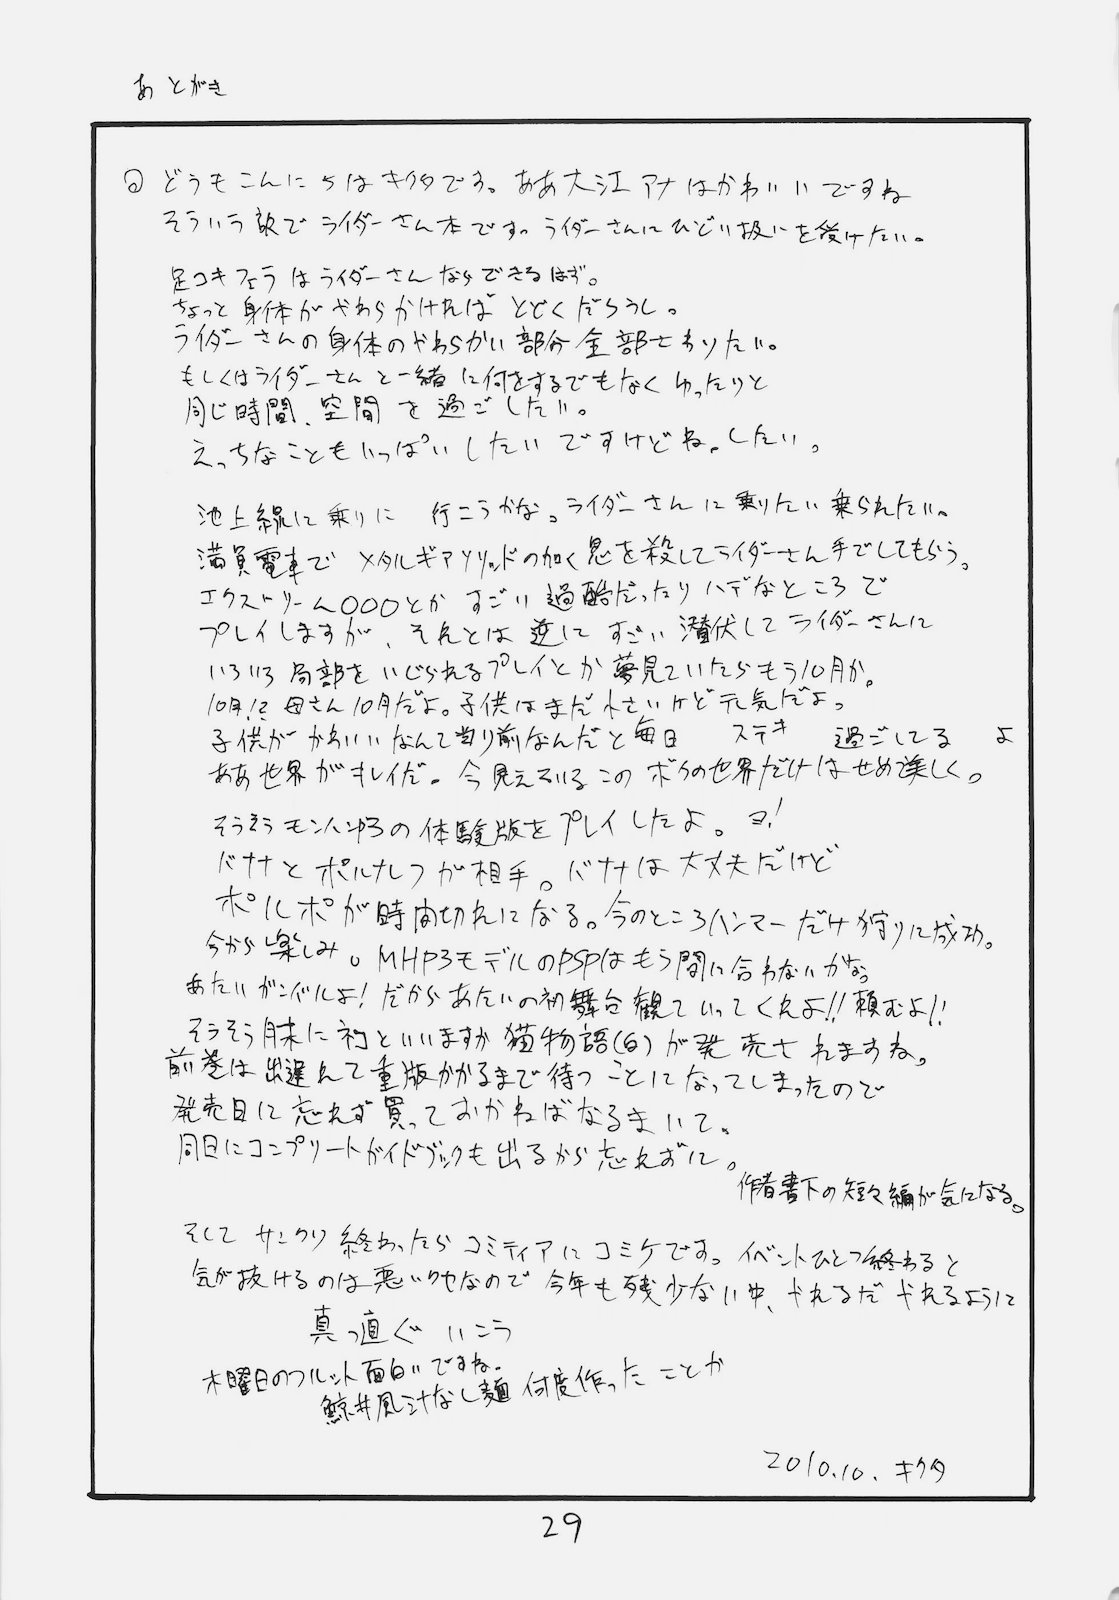 あとがき
どうもこんにちはキクタです。ああ大江アナはかわいいですね
そういう訳でライダーさん本です。ライダーさんにひどい扱いを受けたい。
足コキフェラはライダーさんならできるはず。
ちょっと身体がやわらかければとどくだろうし。
ライダーさんの身体のやわらかい部分全部さわりたい。
もしくはライダーさんと一緒に何をするでもなくゆったりと
同じ時間、空間を過ごしたい。
えっちなこともいっぱいしたいですけどね。したい。
池上線に乗りに 行こうかな。ライダーさんに乗りたい乗られたい。
満員電車でメタルギアソリッドの如く息を殺してライダーさん手でしてもらう。
エクストリーム〇〇〇とかすごい過酷だったりハデなところで
プレイしますが、それとは逆にすごい潜伏してライダーさんに
いろいろ局部をいじられるプレイとか夢見ていたらもう10月か。
10月!? 母さん10月だよ。子供はまだ小さいけど元気だよ。
子供がかわいいなんて当り前なんだと毎日 ステキ 過ごしてる よ
ああ世界がキレイだ。今見えているこのボクの世界だけはせめて美しく。
そうそうモンハンの体験版をプレイしたよ。ヨ!
バナナとポルナレフが相手。バナナは大丈夫だけど
ポルポが時間切れになる。今のところハンマーだけ狩りに成功。
今から楽しみ。MHP3モデルのPSPはもう間に合わないかな。
あたいガンバルよ!だからあたいの初舞台観ていってくれよ!!頼むよ!!
そうそう月末にといいますか猫物語(白)が発売されますね。
前巻は出遅れて重版かかるまで待つことになってしまったので
発売日に忘れず買っておかねばなるまいて。
同日にコンプリートガイドブックも出るから忘れずに。
作者書下の短々編が気になる。
そしてサンクリ終わったらコミティアにコミケです。イベントひとつ終わると
気が抜けるのは悪いクセなので今年も残少ない中、やれるだやれるように
真っ直ぐ いこう
木曜日のフルット面白いですね。
鯨井風汁なし麺何度作ったことか
2010.10. キクタ
29